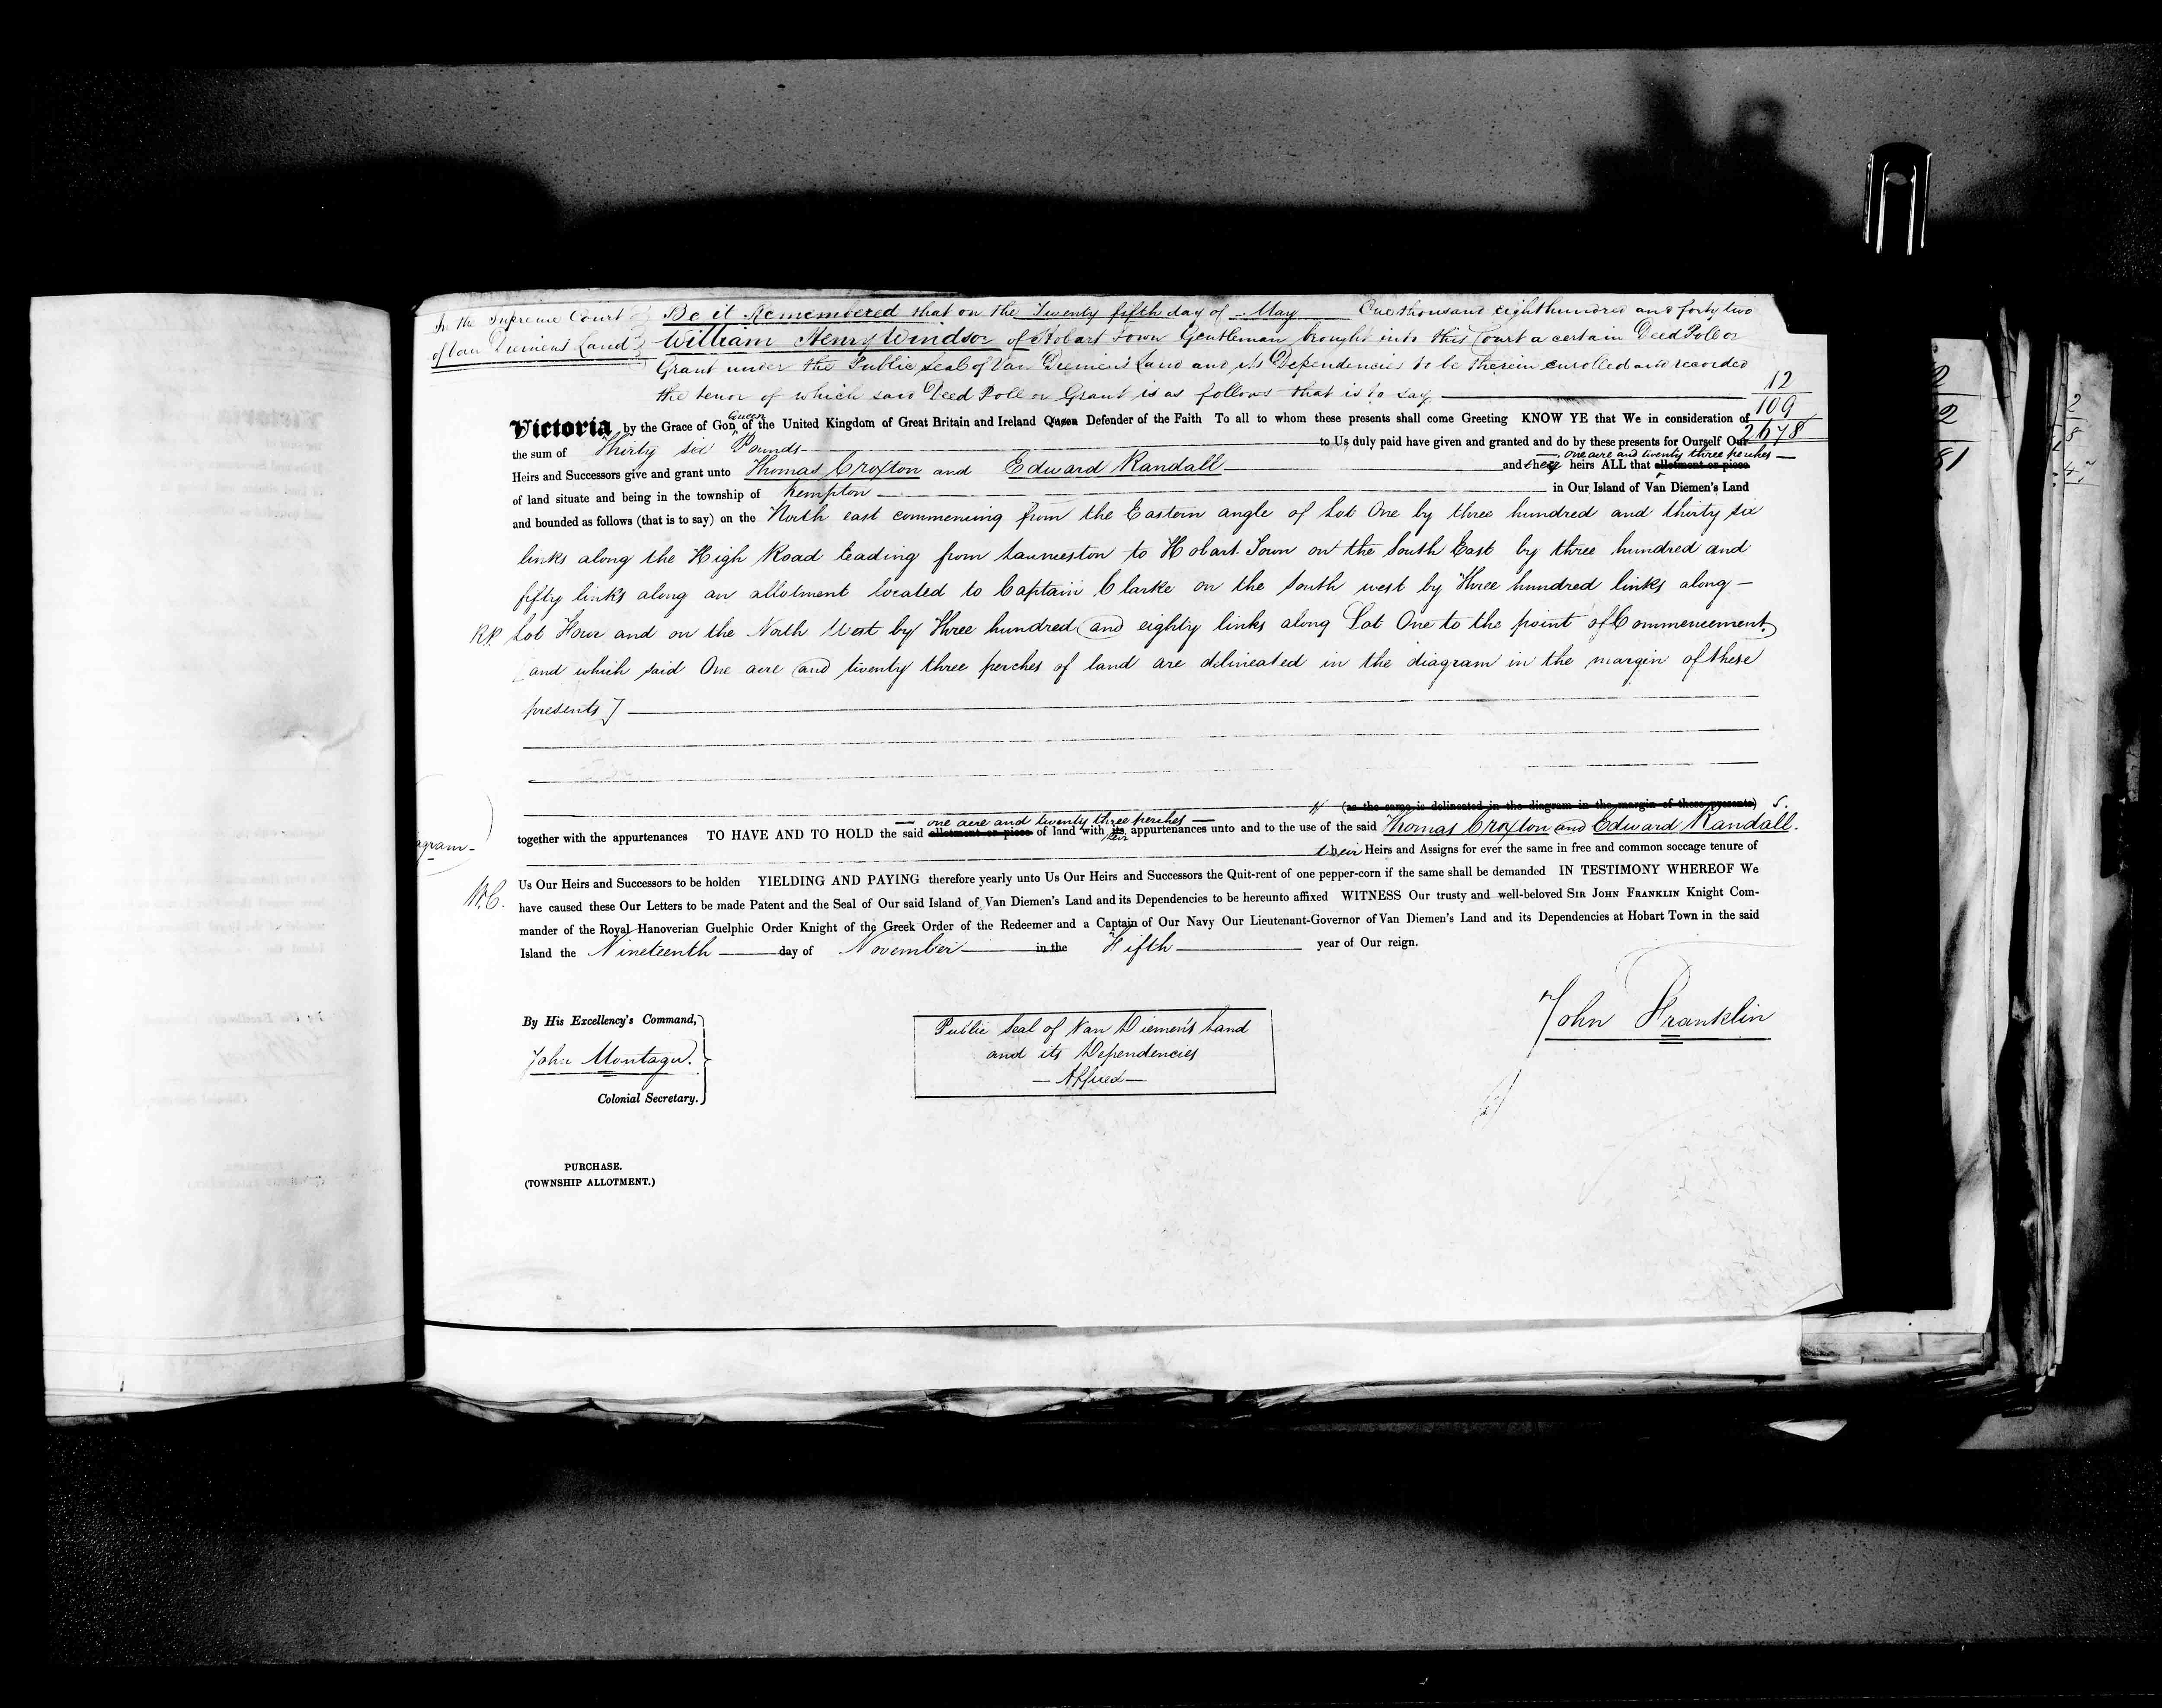 In the Supreme Court
of Van Diemen's Land
Be it Remembered that on the Twenty fifth day of May One thousand eight hundred and forty two
William Henry Windsor of Hobart Town Gentleman brought into this Court a certain Deed Poll or
Grant under the Public Seal of Van Diemen's Land and its Dependencies to be therein enrolled and recorded
the tenor of which said Deed Poll or Grant is as follows that is to say
12
109
2678
Queen
Victoria by the Grace of God of the United Kingdom of Great Britain and Ireland Queen Defender of the Faith To all to whom these presents shall come Greeting KNOW YE that We in consideration of
the sum of Thirty six Pounds to Us duly paid have given and granted and do by these presents for Ourself Our
one acre and twenty three perches
Heirs and Successors give and grant unto Thomas Croxton and Edward Randall and their heirs ALL that allotment or piece
of land situate and being in the township of Kempton in Our Island of Van Diemen's Land
and bounded as follows (that is to say) on the North east commencing from the Eastern angle of Lot One by three hundred and thirty six
links along the High Road leading from Launceston to Hobart Town on the South East by three hundred and
fifty links along an allotment located to Captain Clarke on the South west by Three hundred links along
R.P. Lot Four and on the North West by Three hundred and eighty links along Lot One to the point of Commencement
[and which said One acre and twenty three perches of land are delineated in the diagram in the margin of these
presents]
(as the same is delineated in the diagram in the margin of these presents)
one acre and twenty three perches
together with the appurtenances TO HAVE AND TO HOLD the said allotment or piece of land with its appurtenances unto and to the use of the said Thomas Croxton and Edward Randall.
their
agram
their Heirs and Assigns for ever the same in free and common soccage tenure of
Us Our Heirs and Successors to be holden YIELDING AND PAYING therefore yearly unto Us Our Heirs and Successors the Quit-rent of one pepper-corn if the same shall be demanded IN TESTIMONY WHEREOF We
have caused these Our Letters to be made Patent and the Seal of Our said Island of Van Diemen's Land and its Dependencies to be hereunto affixed WITNESS Our trusty and well-beloved SIR JOHN FRANKLIN Knight Com-
mander of the Royal Hanoverian Guelphic Order Knight of the Greek Order of the Redeemer and a Captain of Our Navy Our Lieutenant-Governor of Van Diemen's Land and its Dependencies at Hobart Town in the said
Island the Nineteenth day of November in the Fifth year of Our reign.
By His Excellency's Command,
John Montagu.
Colonial Secretary.
Public Seal of Van Diemen's Land
and its Dependencies
Affixed
John Franklin
PURCHASE.
(TOWNSHIP ALLOTMENT.)